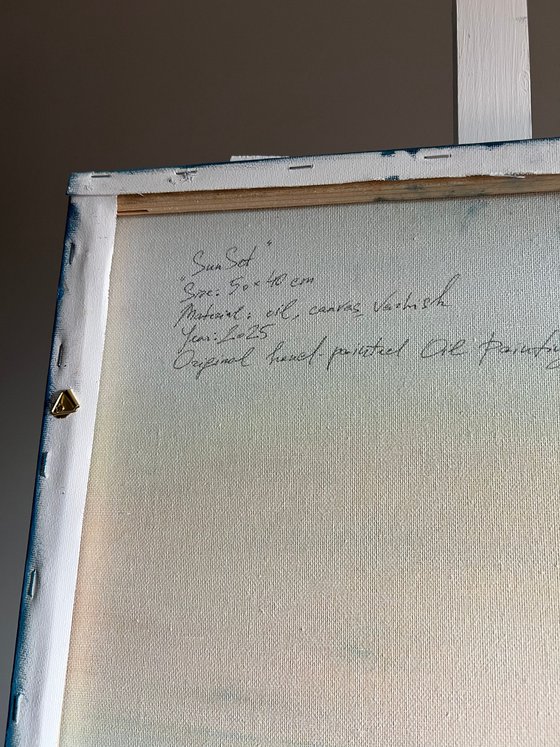 „SunSet"
Size: 50 × 40 cm
Material: oil, canvas, Varnish
Year: 2025
Original hand-painted Oil Painting